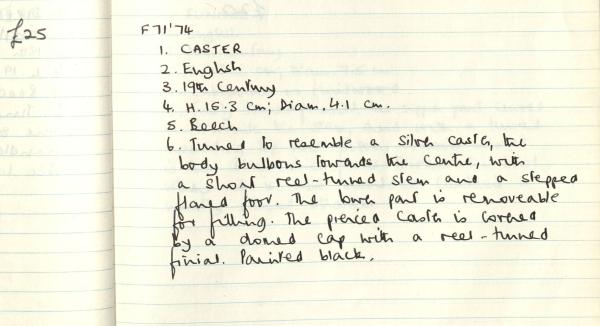 £25
F71'74
1. CASTER
2. English
3. 19th Century
4. H. 15.3 cm; Diam. 4.1 cm.
5. Beech
6. Turned to resemble a silver caster, the
body bulbous towards the centre, with
a short reel-turned stem and a stepped
flared foot. The lower part is removeable
for filling. The pierced caster is covered
by a domed cap with a reel-turned
finial. Painted black.